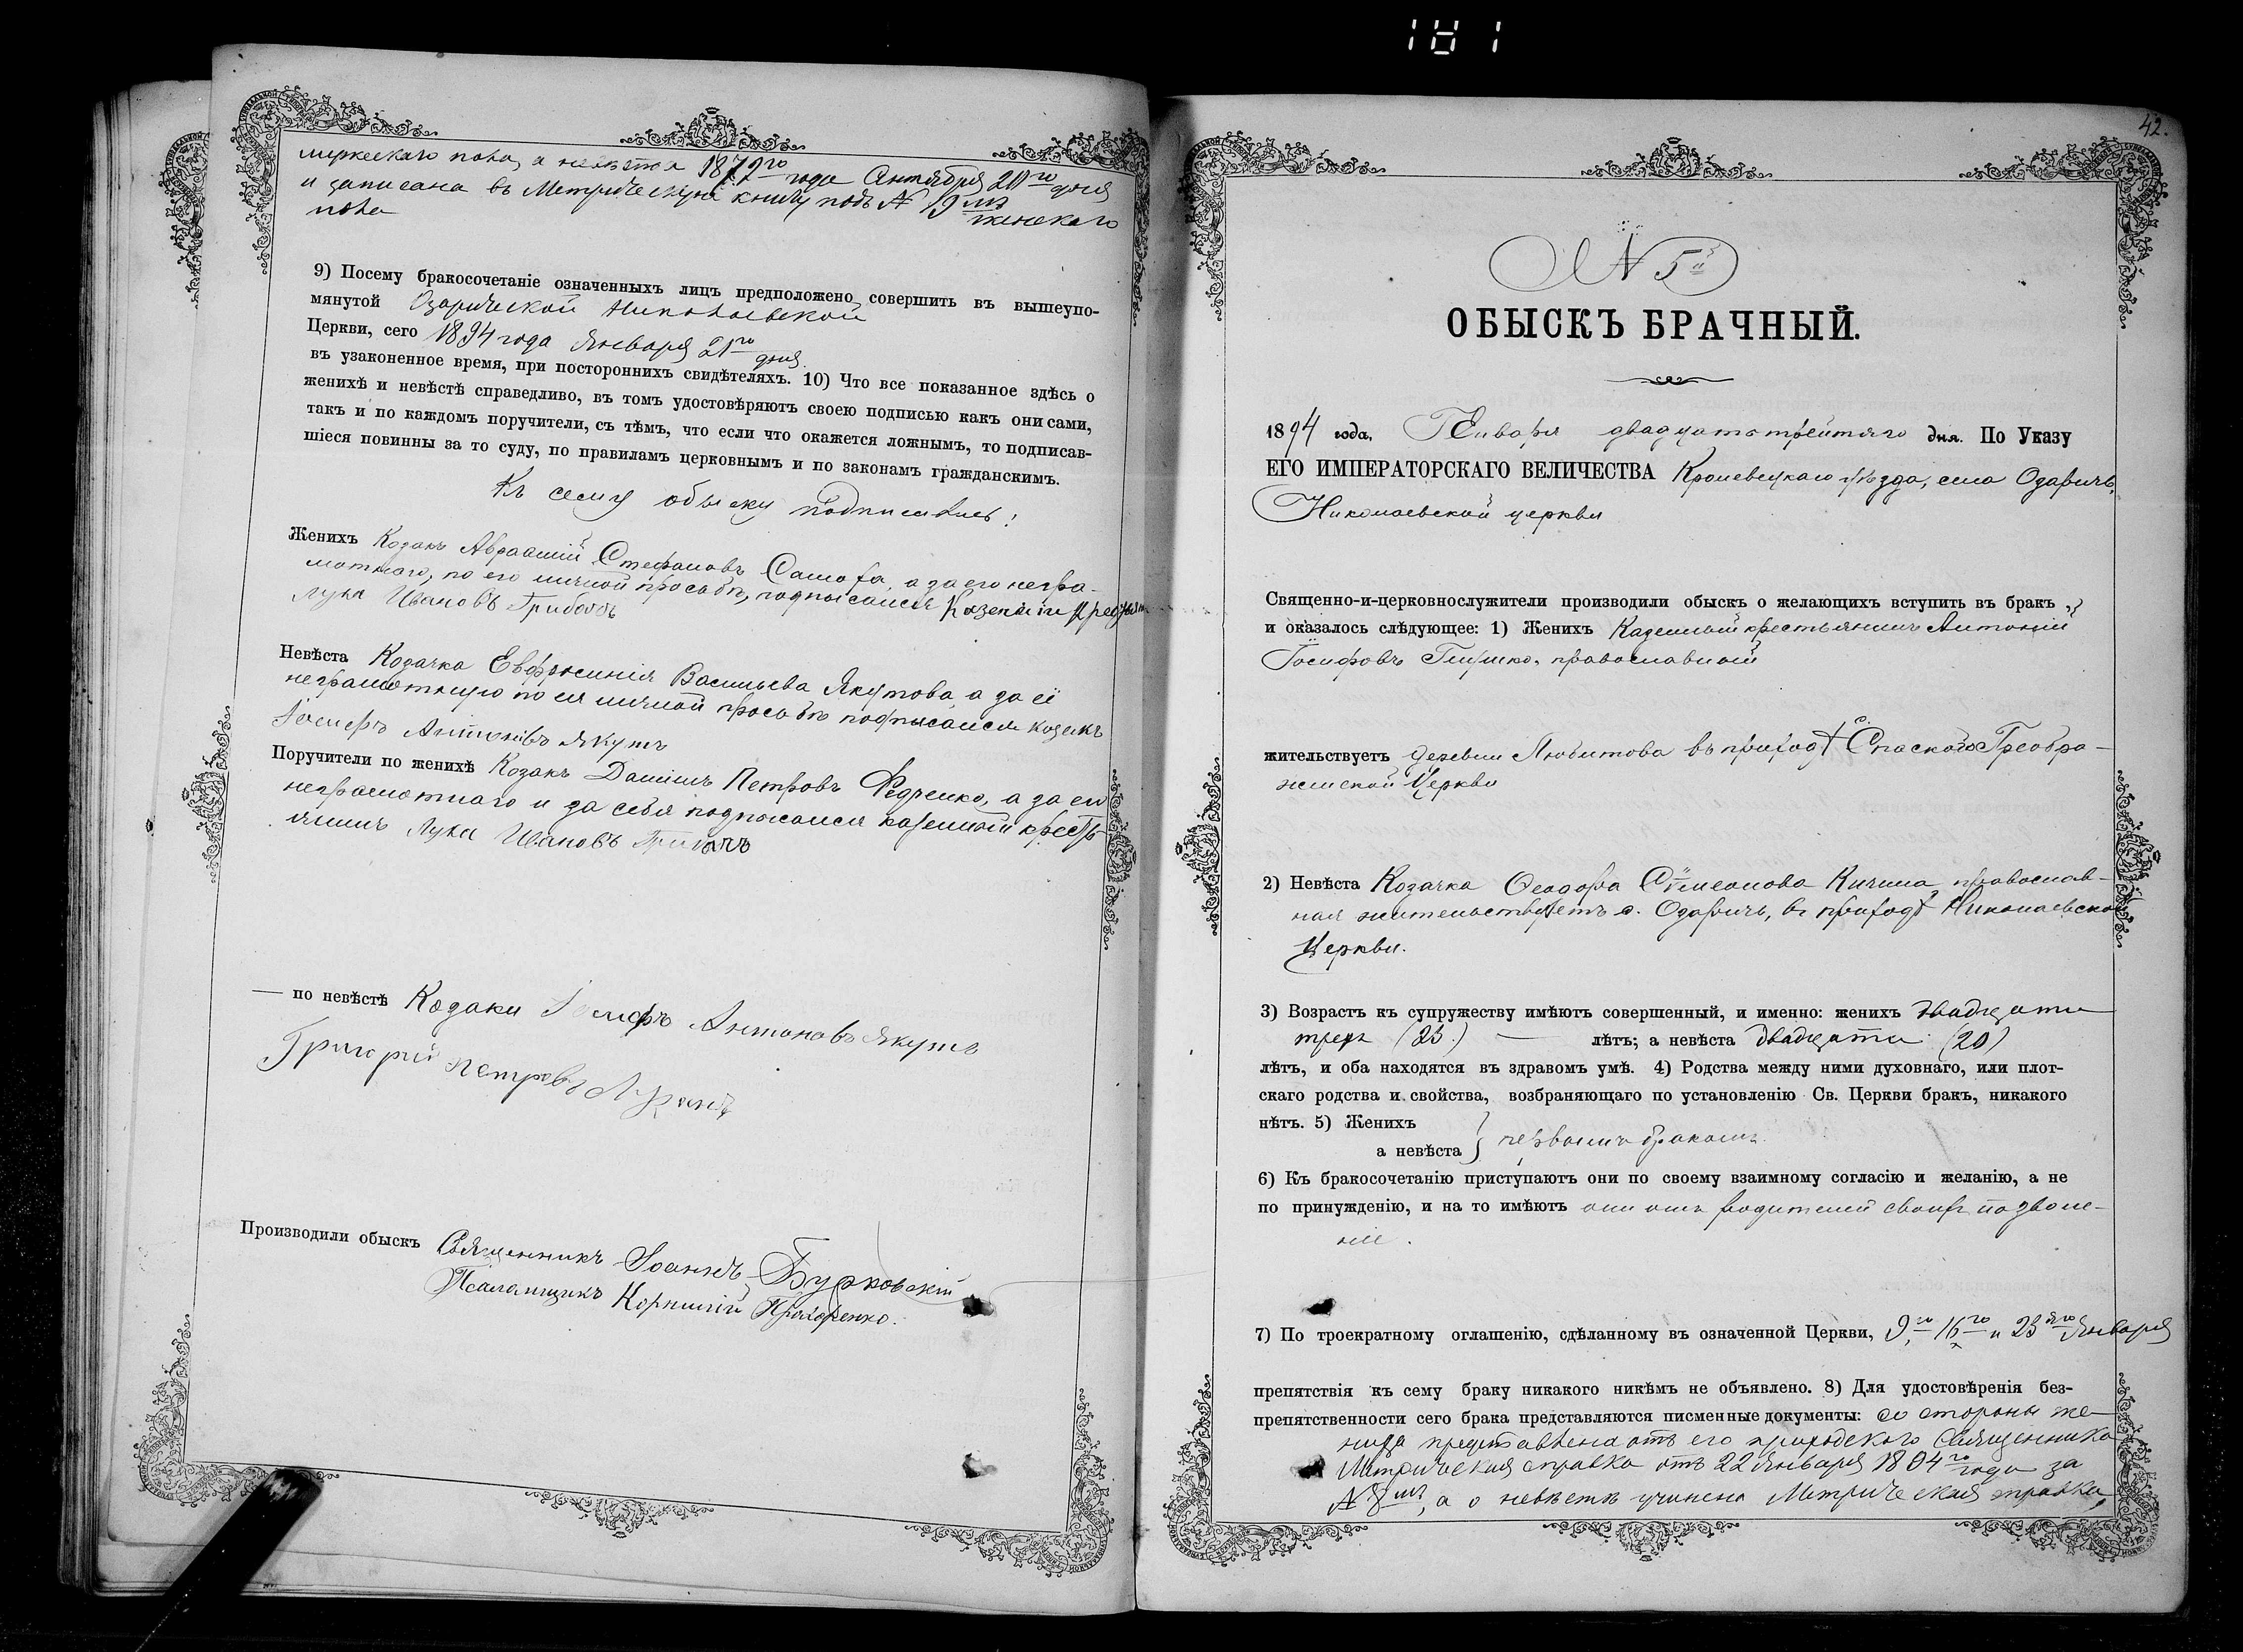 181
мужескаго пола, а невѣста 1872го года Сентября 20го дня
и записана въ Метрическую книгу подъ № 19мъ женскаго
пола
9) Посему бракосочетаніе означенныхъ лицъ предположено совершить въ вышеупо-
мянутой Озарической Николаевской
Церкви, сего 1894 года Января 21го дня
въ узаконенное время, при постороннихъ свидѣтеляхъ. 10) Что все показанное здѣсь о
женихѣ и невѣстѣ справедливо, въ томъ удостовѣряютъ своею подписью какъ они сами,
такъ и по каждомъ поручители, съ тѣмъ, что если что окажется ложнымъ, то подписав-
шіеся повинны за то суду, по правиламъ церковнымъ и по законамъ гражданскимъ.
Къ сему обыску подписались:
Женихъ Козакъ Авраамій Стефановъ Самоха, а за его негра-
мотнаго, по его личной просьбѣ, подписался Казенный Крестьян.
Лука Ивановъ
Невѣста Козачка Евфросинія Васильева Якутова, а за её
неграмотную по ея личной просьбѣ подписался козакъ
Іосифъ Антоновъ Якутъ
Поручители по женихѣ Козакъ Даніилъ Петровъ Федченко, а за его
неграмотнаго и за себя подписался казенный кресть-
янинъ Лука Ивановъ
— по невѣстѣ Козаки Іосифъ Антоновъ Якутъ
Григорій Петровъ
Производили обыскъ Священникъ Іоаннъ Бурковскій
Псаломщикъ Корнилій Прохоренко.
42.
№ 5й
ОБЫСКЪ БРАЧНЫЙ.
1894 года, Генваря двадцать третьяго дня. По Указу
ЕГО ИМПЕРАТОРСКАГО ВЕЛИЧЕСТВА Кролевецкаго уѣзда, села Озаричъ,
Николаевской церкви
Священно-и-церковнослужители производили обыскъ о желающихъ вступить въ бракъ,
и оказалось слѣдующее: 1) Женихъ Казенный крестьянинъ Антоній
Іосифовъ Глушко, православный
жительствуетъ деревни Любитова въ приходѣ с. Спаского Преобра-
женской Церкви
2) Невѣста Козачка Ѳеодора Симеонова Кичина, православ-
ная жительствуетъ с. Озаричъ, въ приходѣ Николаевской
Церкви.
3) Возрастъ къ супружеству имѣютъ совершенный, и именно: женихъ двадцати
трехъ (23.) — лѣтъ; а невѣста двадцати (20)
лѣтъ, и оба находятся въ здравомъ умѣ. 4) Родства между ними духовнаго, или плот-
скаго родства и свойства, возбраняющаго по установленію Св. Церкви бракъ, никакого
нѣтъ. 5) Женихъ
а невѣста } первымъ бракомъ.
6) Къ бракосочетанію приступаютъ они по своему взаимному согласію и желанію, а не
по принужденію, и на то имѣютъ они отъ родителей своихъ позволе-
ніе.
7) По троекратному оглашенію, сдѣланному въ означенной Церкви, 9го, 16го и 23яго Января
препятствія къ сему браку никакого никѣмъ не объявлено. 8) Для удостовѣренія без-
препятственности сего брака представляются писменные документы: со стороны же-
ниха представлена отъ его приходского Священника
Метрическая справка отъ 22 Января 1894го года за
№ 8мъ, а о невѣстѣ учинена Метрическая справка,